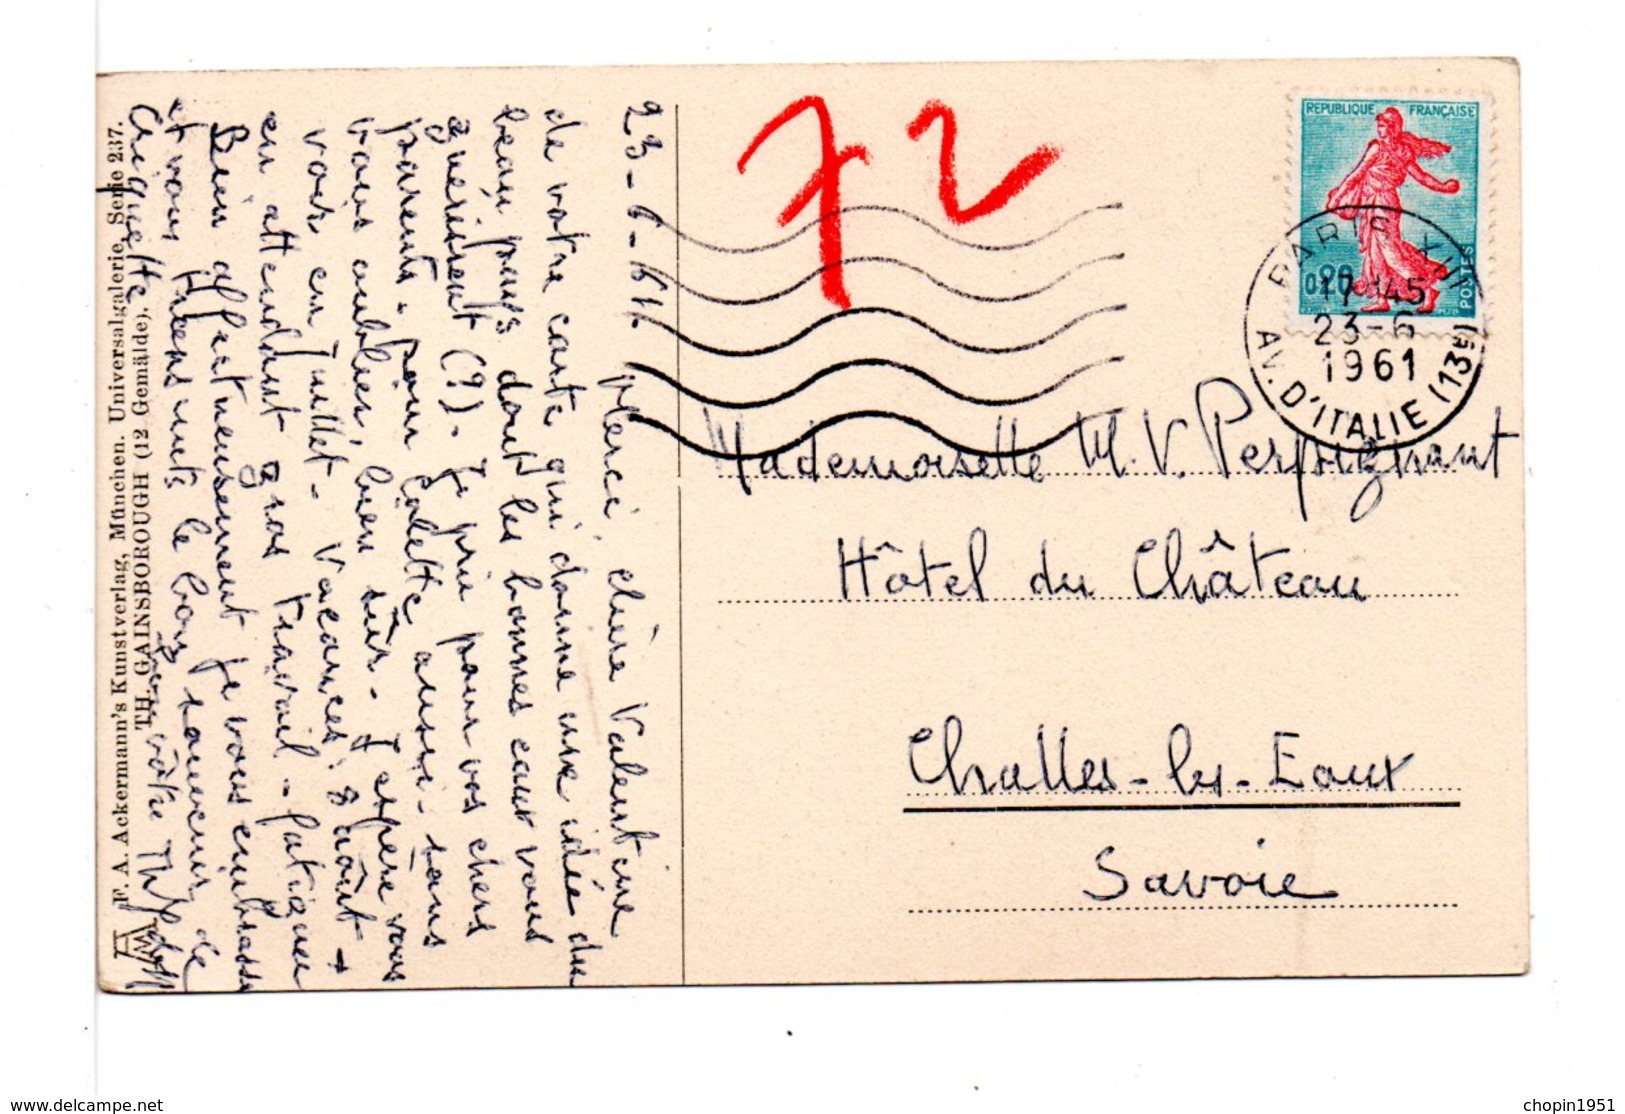 23-6-61
Merci, chère Valentine
de votre carte qui donne une idée du
beau pays dont les bonnes eaux vous
guérissent (?). Je prie pour vos chers
parents - pour Colette aussi - sans
vous oublier, bien sûr. J'espère vous
voir en Juillet - Vacances: 8 août -
en attendant gros travail - fatiguée
Bien affectueusement je vous embrasse
et vous transmets le bon souvenir de
Criquette
votre
F. A. Ackermann's Kunstverlag, München. Universalgalerie, Serie 237.
TH. GAINSBOROUGH (12 Gemälde).
72
REPUBLIQUE FRANÇAISE
0,20
POSTES
PARIS XIII
17H45
23-6
1961
AV. D'ITALIE (13E)
Mademoiselle M. V. Perpignant
Hôtel du Château
Challes-les-Eaux
Savoie
delcampe.net
chopin1951